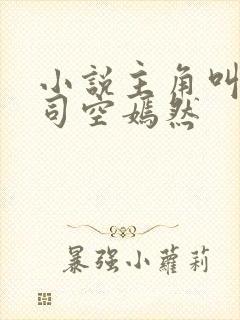 小説主角叫
司空嫣然
暴強小蘿莉